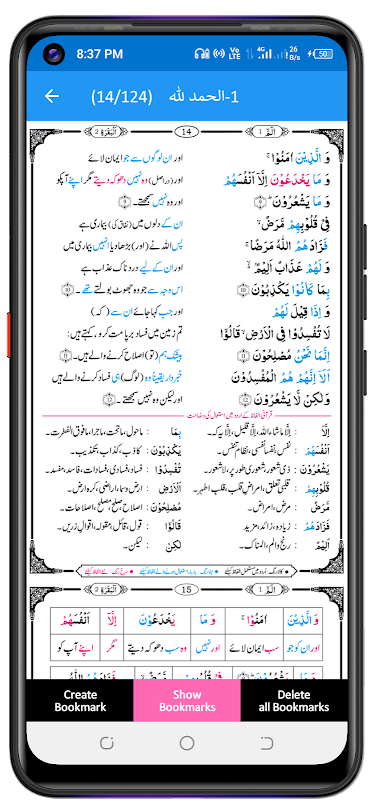 8:37 PM
Vo LTE 4G 26 B/s 50
(14/124) 1-الحمد لله
الٓمّٓ 1
14
اَلْبَقَرَة 2
وَ الَّذِيْنَ اٰمَنُوْا ۚ اور ان لوگوں سے جو ایمان لائے
وَ مَا يَخْدَعُوْنَ اِلَّاۤ اَنْفُسَهُمْ اور (دراصل) وہ نہیں دھوکہ دیتے مگر اپنے آپکو
وَ مَا يَشْعُرُوْنَ ؕ اور وہ نہیں سمجھتے۔
فِيْ قُلُوْبِهِمْ مَّرَضٌ ۙ ان کے دلوں میں (نفاق کی) بیماری ہے
فَزَادَهُمُ اللّٰهُ مَرَضًا ۚ پس اللہ نے (اور) بڑھا دیا انہیں بیماری میں
وَ لَهُمْ عَذَابٌ اَلِيْمٌۢ ۙ اور ان کے لیے دردناک عذاب ہے
بِمَا كَانُوْا يَكْذِبُوْنَ ۱۰ اس وجہ سے جو وہ جھوٹ بولتے تھے۔ ۱۰
وَ اِذَا قِيْلَ لَهُمْ اور جب کہا جائے ان سے (کہ)
لَا تُفْسِدُوْا فِي الْاَرْضِ ۙ قَالُوْۤا تم زمین میں فساد برپا مت کرو، کہتے ہیں:
اِنَّمَا نَحْنُ مُصْلِحُوْنَ ۱۱ بیشک ہم (تو) اصلاح کرنے والے ہیں۔ ۱۱
اَلَاۤ اِنَّهُمْ هُمُ الْمُفْسِدُوْنَ خبردار یقیناً وہ (لوگ) ہی فساد کرنے والے ہیں
وَلٰكِنْ لَّا يَشْعُرُوْنَ ۱۲ اور لیکن وہ نہیں سمجھتے۔ ۱۲
قرآنی الفاظ کے اردو میں استعمال کی وضاحت
اِلَّا : الا ماشاء اللہ، الا قلیل، الا یہ کہ۔ بِمَا : ماحول، ماتحت، ماجرا، مافوق الفطرت۔
اَنْفُسَهُمْ : نفس، نفسا نفسی، نظام تنفس۔ يَكْذِبُوْنَ : کاذب، کذاب، تکذیب۔
يَشْعُرُوْنَ : ذی شعور، شعوری طور پر، لاشعور۔ تُفْسِدُوْا : فساد، فسادی، فسادات، فاسد، مفسد۔
قُلُوْبِهِمْ : قلبی تعلق، امراض قلب، قلب اطہر۔ الْاَرْضِ : ارض و سما، اراضی، کرہ ارض۔
مَّرَضٌ : مرض، امراض۔ مُصْلِحُوْنَ : اصلاح، صلح، مصلح، اصلاحات۔
فَزَادَهُمُ : زیادہ، زائد، مزید۔ قَالُوْۤا : قول، قائل، مقولہ، اقوال زریں۔
اَلِيْمٌ : رنج و الم، المناک۔ لٰكِنْ : لیکن۔
الٓمّٓ 1
15
اَلْبَقَرَة 2
وَ الَّذِيْنَ اٰمَنُوْا ۚ وَ مَا يَخْدَعُوْنَ اِلَّاۤ اَنْفُسَهُمْ
اور ان کو جو سب ایمان لائے اور نہیں وہ سب دھوکہ دیتے مگر اپنے آپ کو
Create Bookmark
Show Bookmarks
Delete all Bookmarks